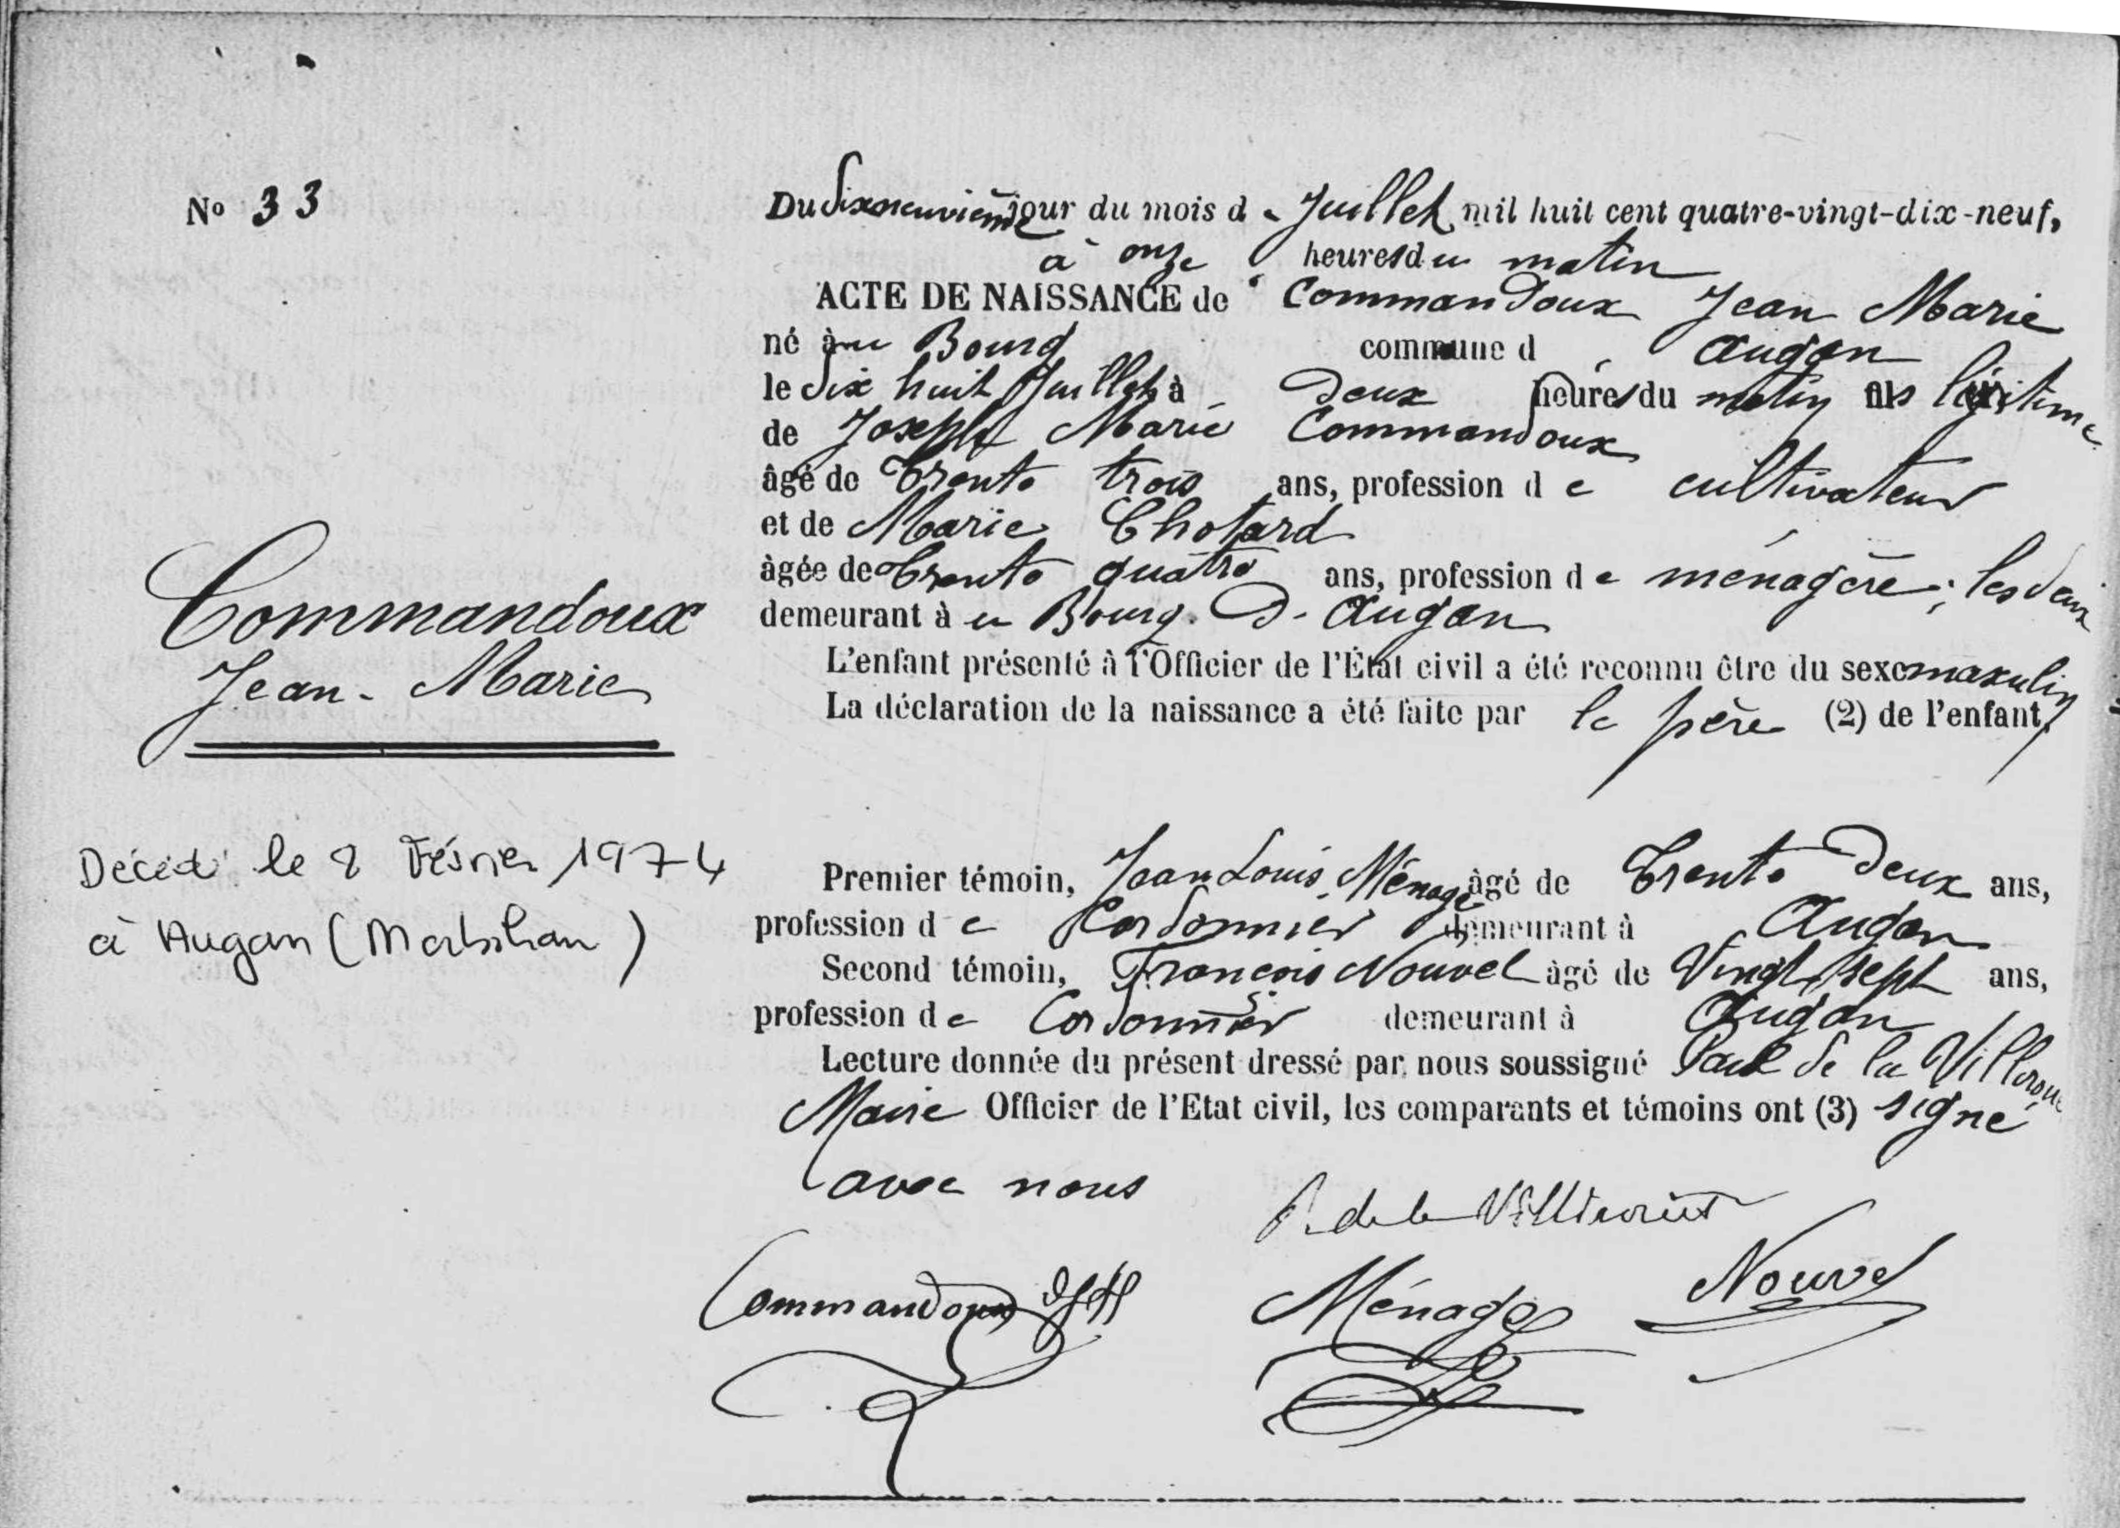 No 33
Du dixneuvième jour du mois de Juillet mil huit cent quatre-vingt-dix-neuf,
à onze heures du matin
ACTE DE NAISSANCE de Commandoux Jean Marie
né au Bourg commune d' Augan
le dix huit Juillet à deux heures du matin fils légitime
de Joseph Marie Commandoux
âgé de trente trois ans, profession de cultivateur
et de Marie Chotard
âgée de trente quatre ans, profession de ménagère ; les deux
demeurant à u Bourg d'Augan
L'enfant présenté à l'Officier de l'État civil a été reconnu être du sexe masculin
La déclaration de la naissance a été faite par le père (2) de l'enfant.
Commandoux
Jean-Marie
Décédé le 8 Février 1974
à Augan (Morbihan)
Premier témoin, Jean Louis Ménage âgé de trente deux ans,
profession de Cordonnier demeurant à Augan
Second témoin, François Nouvel âgé de Vingt sept ans,
profession de Cordonnier demeurant à Augan
Lecture donnée du présent dressé par nous soussigné Paul de la
Maire Officier de l'Etat civil, les comparants et témoins ont (3) signé
avec nous
P. de la
Commandoux
Ménage
Nouvel